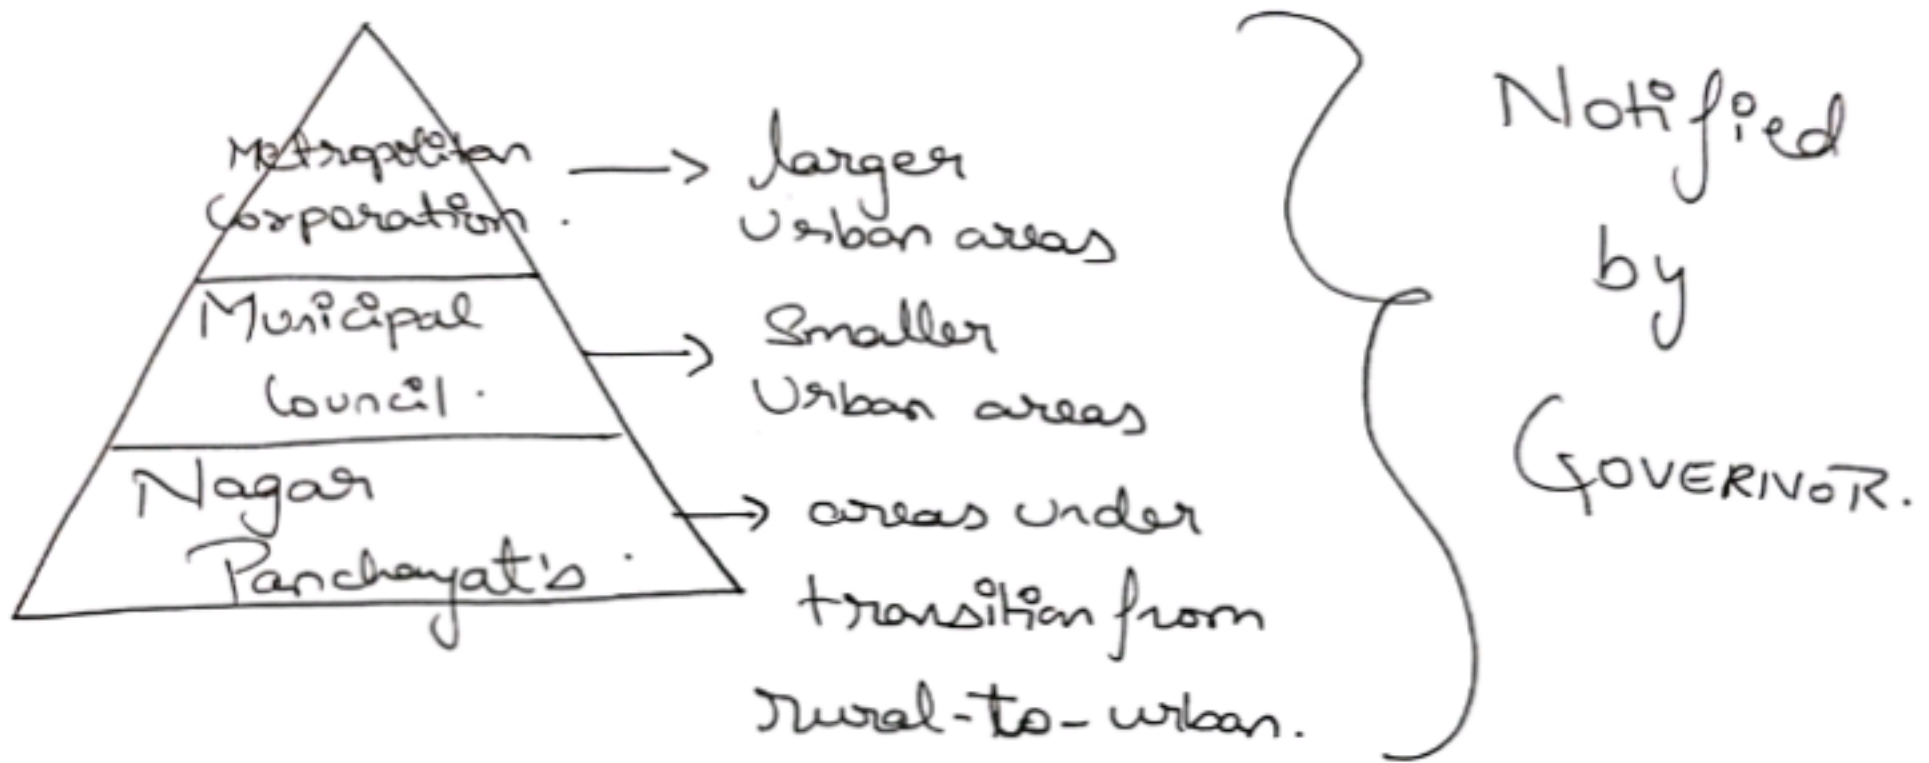 Metropolitan
Corporation.
→ larger
Urban areas
Municipal
Council.
→ Smaller
Urban areas
Nagar
Panchayat's.
→ areas under
transition from
rural-to-urban.
Notified
by
GOVERNOR.